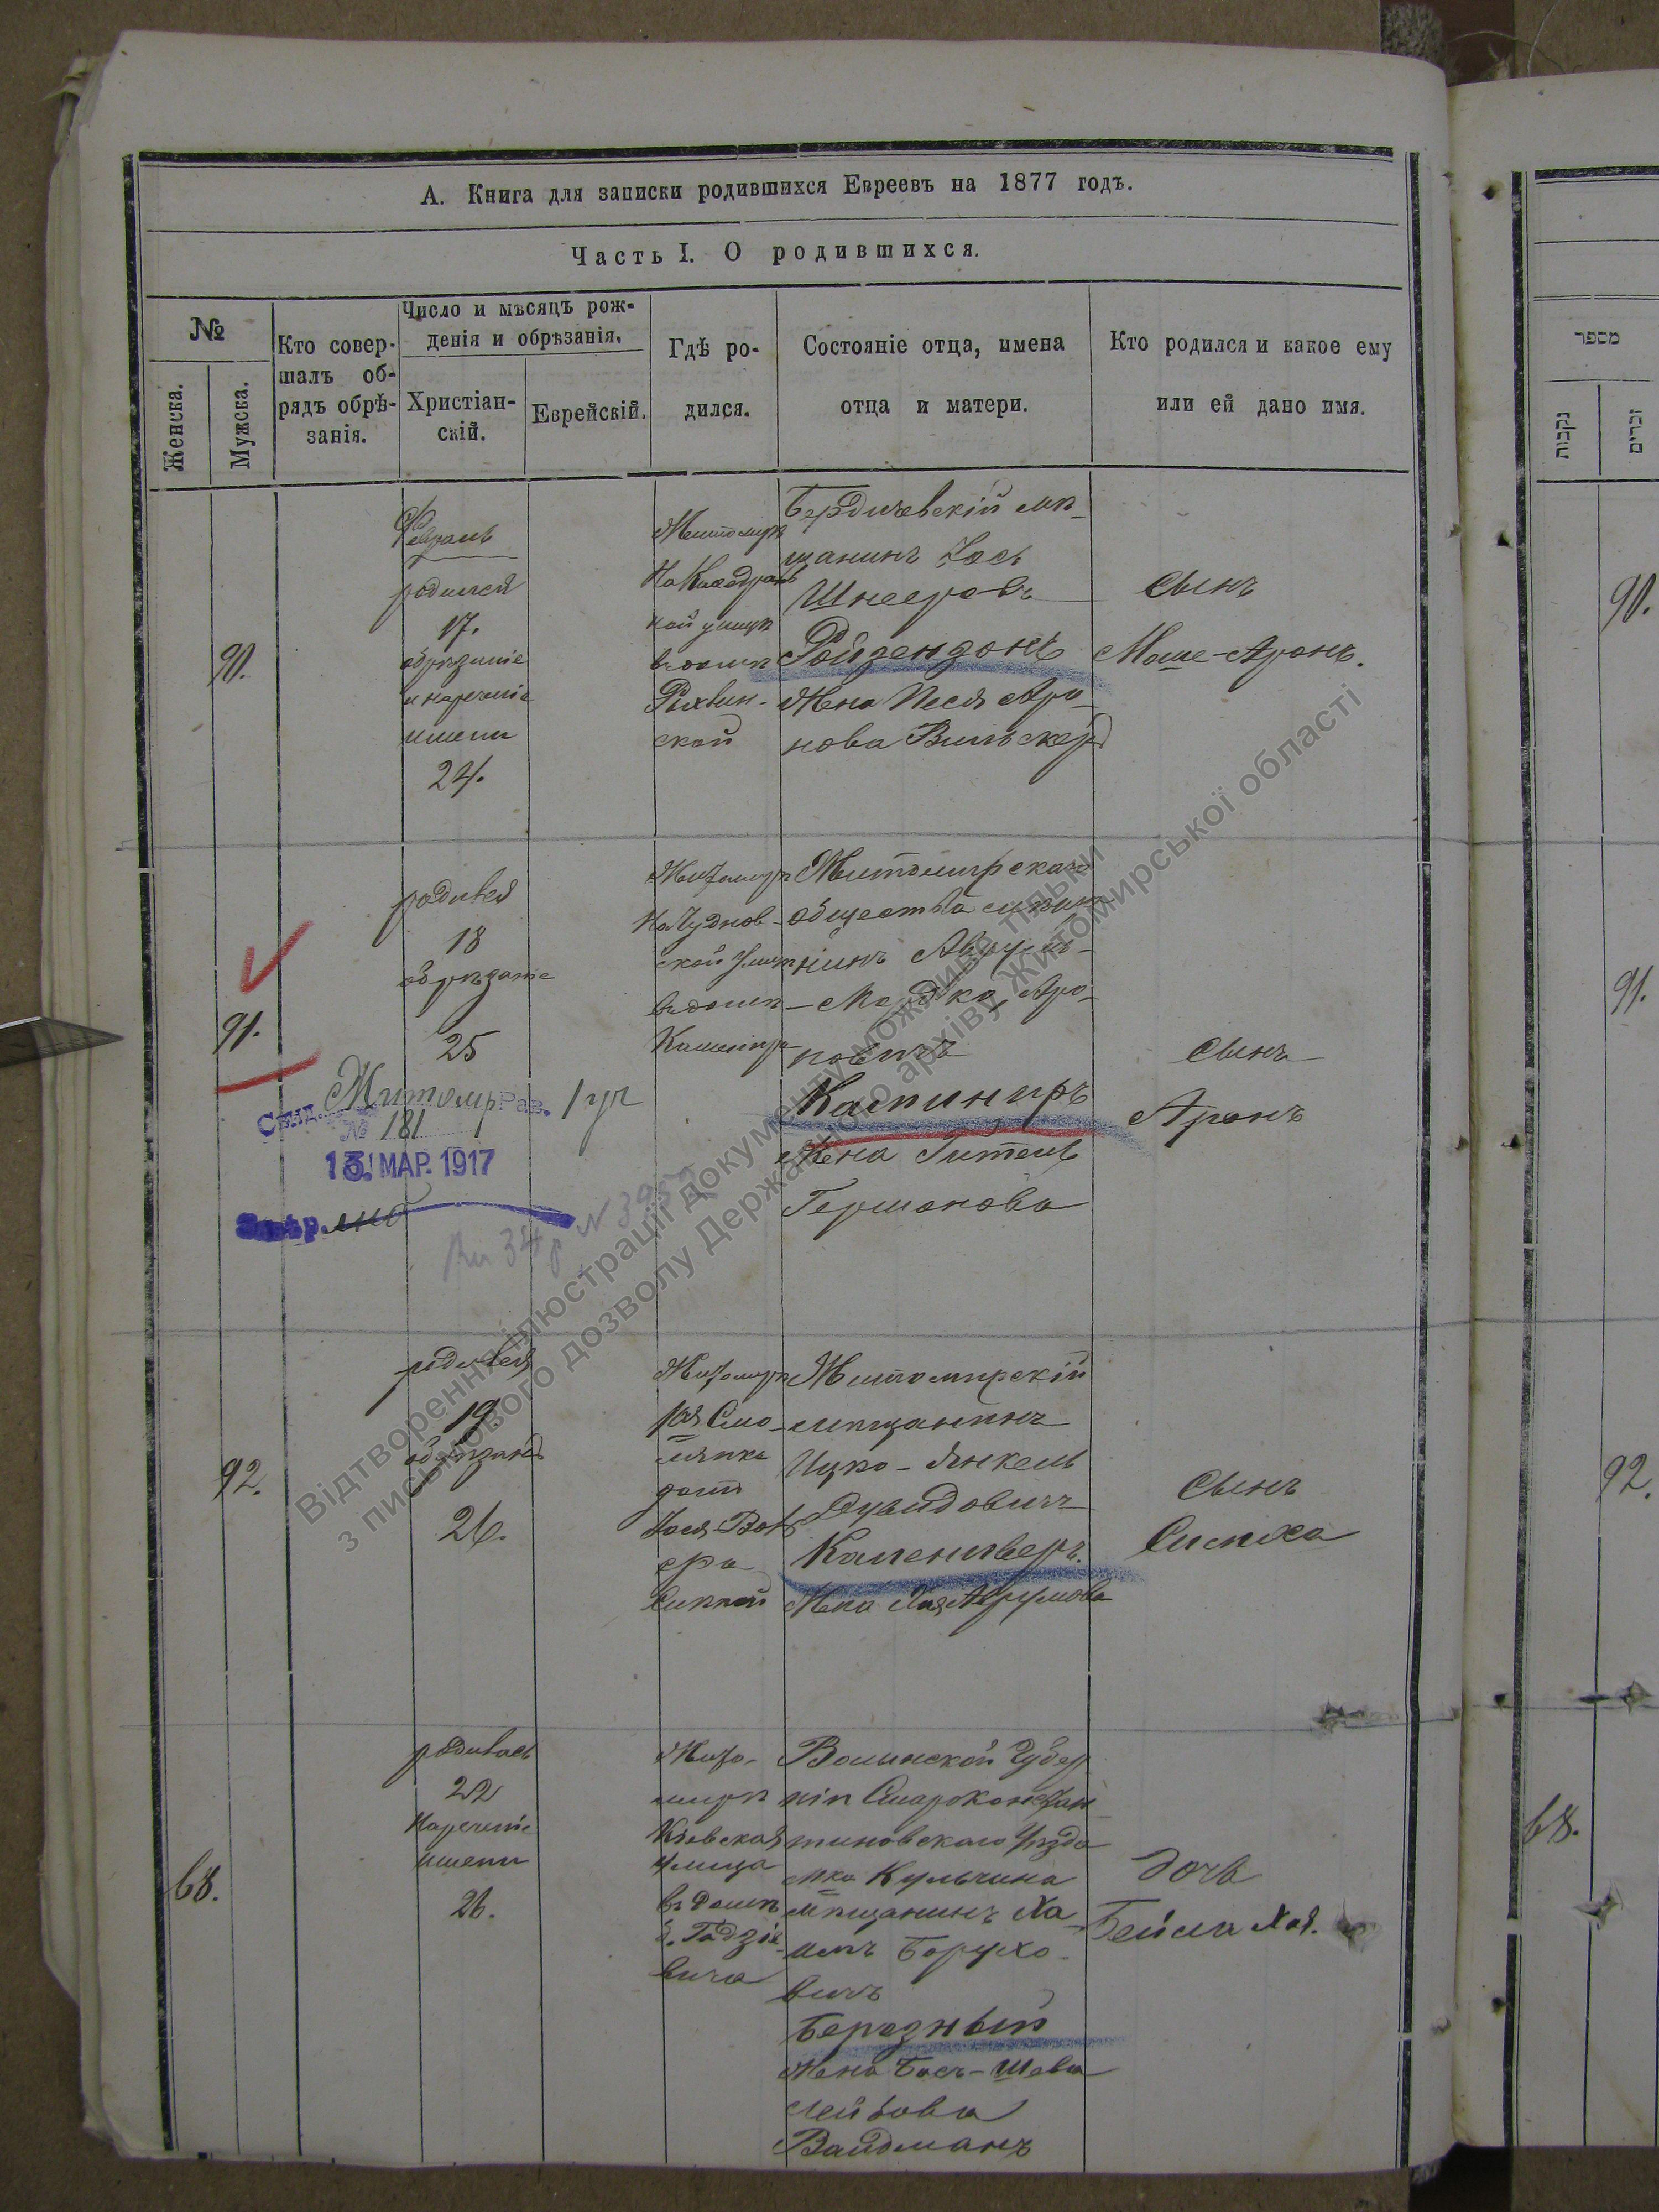 А. Книга для записки родившихся Евреевъ на 1877 годъ.
Часть I. О родившихся.
№
Женска.
Мужска.
Кто совер-
шалъ об-
рядъ обрѣ-
занія.
Число и мѣсяцъ рож-
денія и обрѣзанія.
Христіан-
скій.
Еврейскій.
Гдѣ ро-
дился.
Состояніе отца, имена
отца и матери.
Кто родился и какое ему
или ей дано имя.
90.
Февраль
родился
17.
обрѣзаніе
и нареченіе
имени
24.
Житомирѣ
На Кафедраль
ной улицѣ
въ домѣ
Рыхвин-
ской
Бердичевскій мѣ-
щанинъ Іось
Шнееровъ
Ройзендонъ
Жена Песя Аро-
нова Вильскер
Сынъ
Моше-Аронъ.
91.
родився
18
обрѣзаніе
25
Житомирѣ
На Чуднов-
ской улицѣ
въ домѣ
Житомирскаго
общества мѣща-
нинъ Аврумъ-
Мордко Аро-
новичъ
Каминиръ
Жена Гитель
Гершонова
Сынъ
Аронъ
Свид. Житомир Рав.
№ 181
13 МАР. 1917
№ 3952
92.
родився
19.
обрѣзаніе
26.
Житомирѣ
1ая Смо-
лянка
домъ
Житомирскій
мѣщанинъ
Ицко-Янкель
Дувидовичъ
Каменшверъ.
Жена Хая Аврумова
Сынъ
Симха
68.
родилась
22
Нареченіе
имени
26.
Жито-
мирѣ
Кіевская
улица
въ домѣ
Б. Гадзіе-
вича
Волынской Губер
ніи Староконстан-
тиновскаго Уѣзда
мѣка Кульчина
мѣщанинъ Ха-
имъ Борухо-
вичъ
Березный
Жена Бась-Шева
Лейбова
Вайдманъ
дочь
Бейла Хая.
מספר
נקבות
זכרים
90.
91.
92.
68.
Відтворення ілюстрації документу можливо тільки
з письмового дозволу Державного архіву Житомирської області